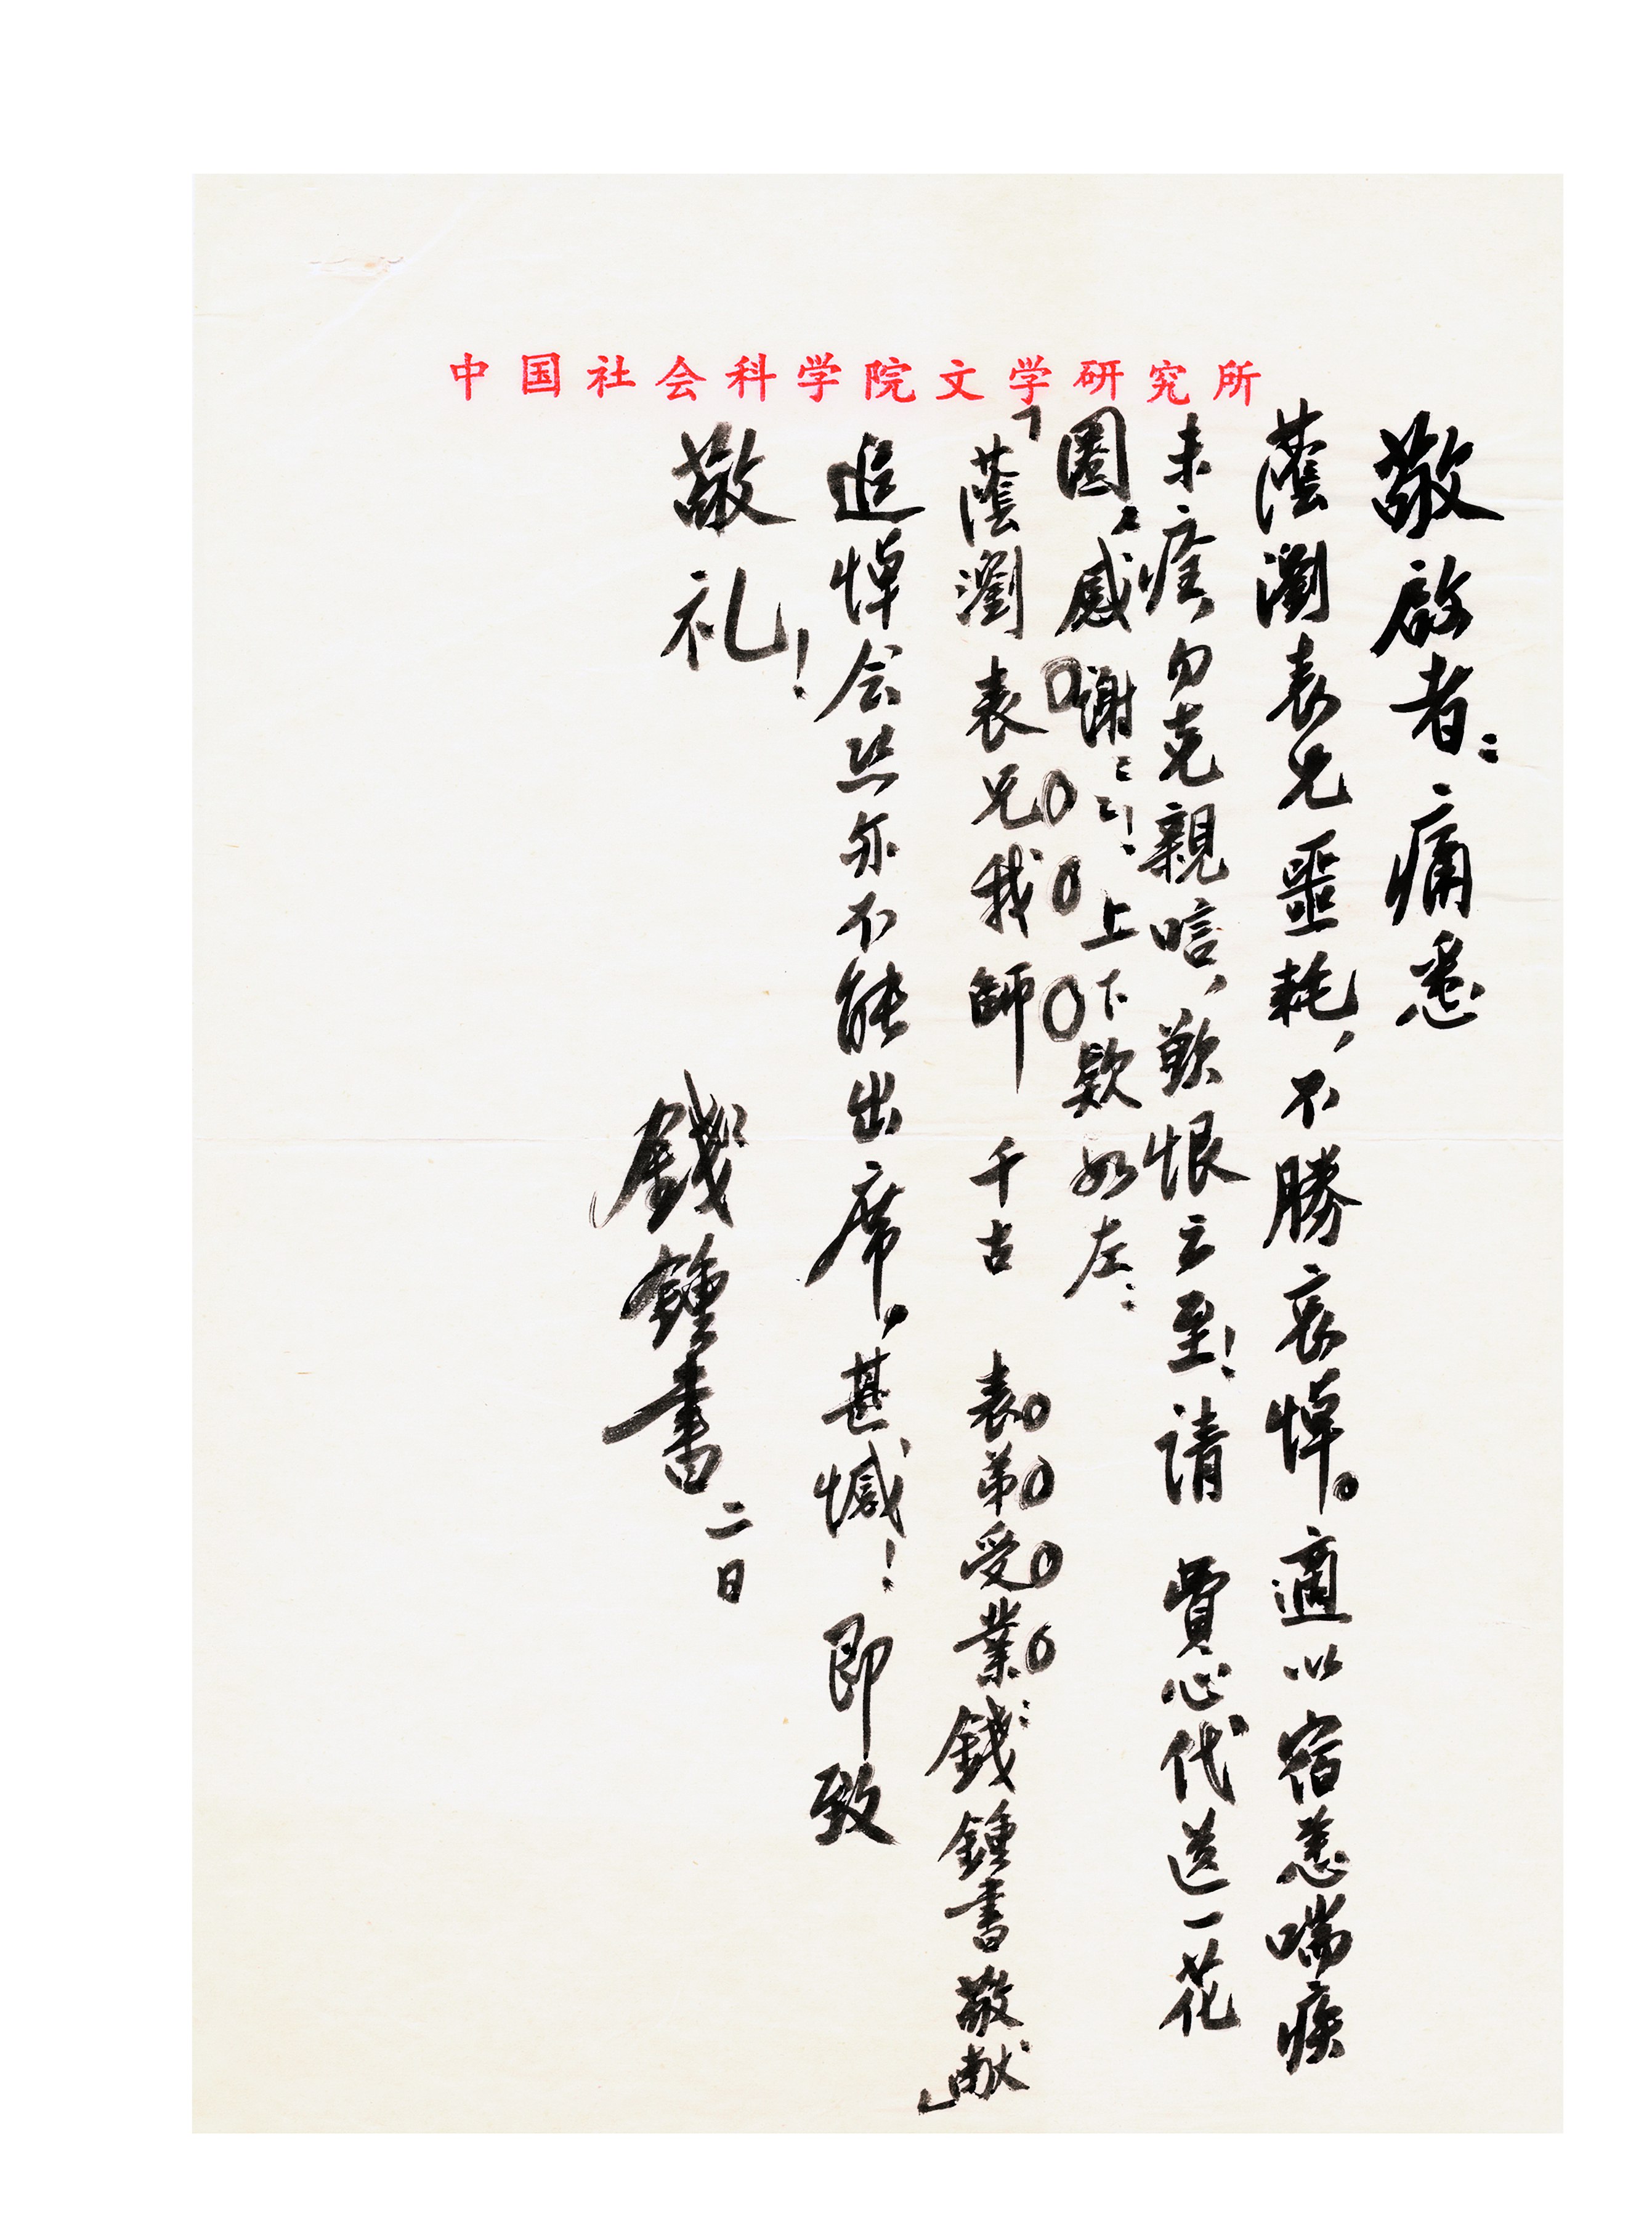 中国社会科学院文学研究所
敬啟者：痛悉
蔭瀏表兄噩耗，不勝哀悼。適以宿恙喘疾
未痊，勿克親唁，歉恨云至！请 費心代送一花
圈，感谢：：！上下款如左：
「蔭瀏表兄我師 千古 表弟受業：錢鍾書敬献」
追悼会恐亦不能出席，甚憾！即致
敬礼！
錢鍾書 二日